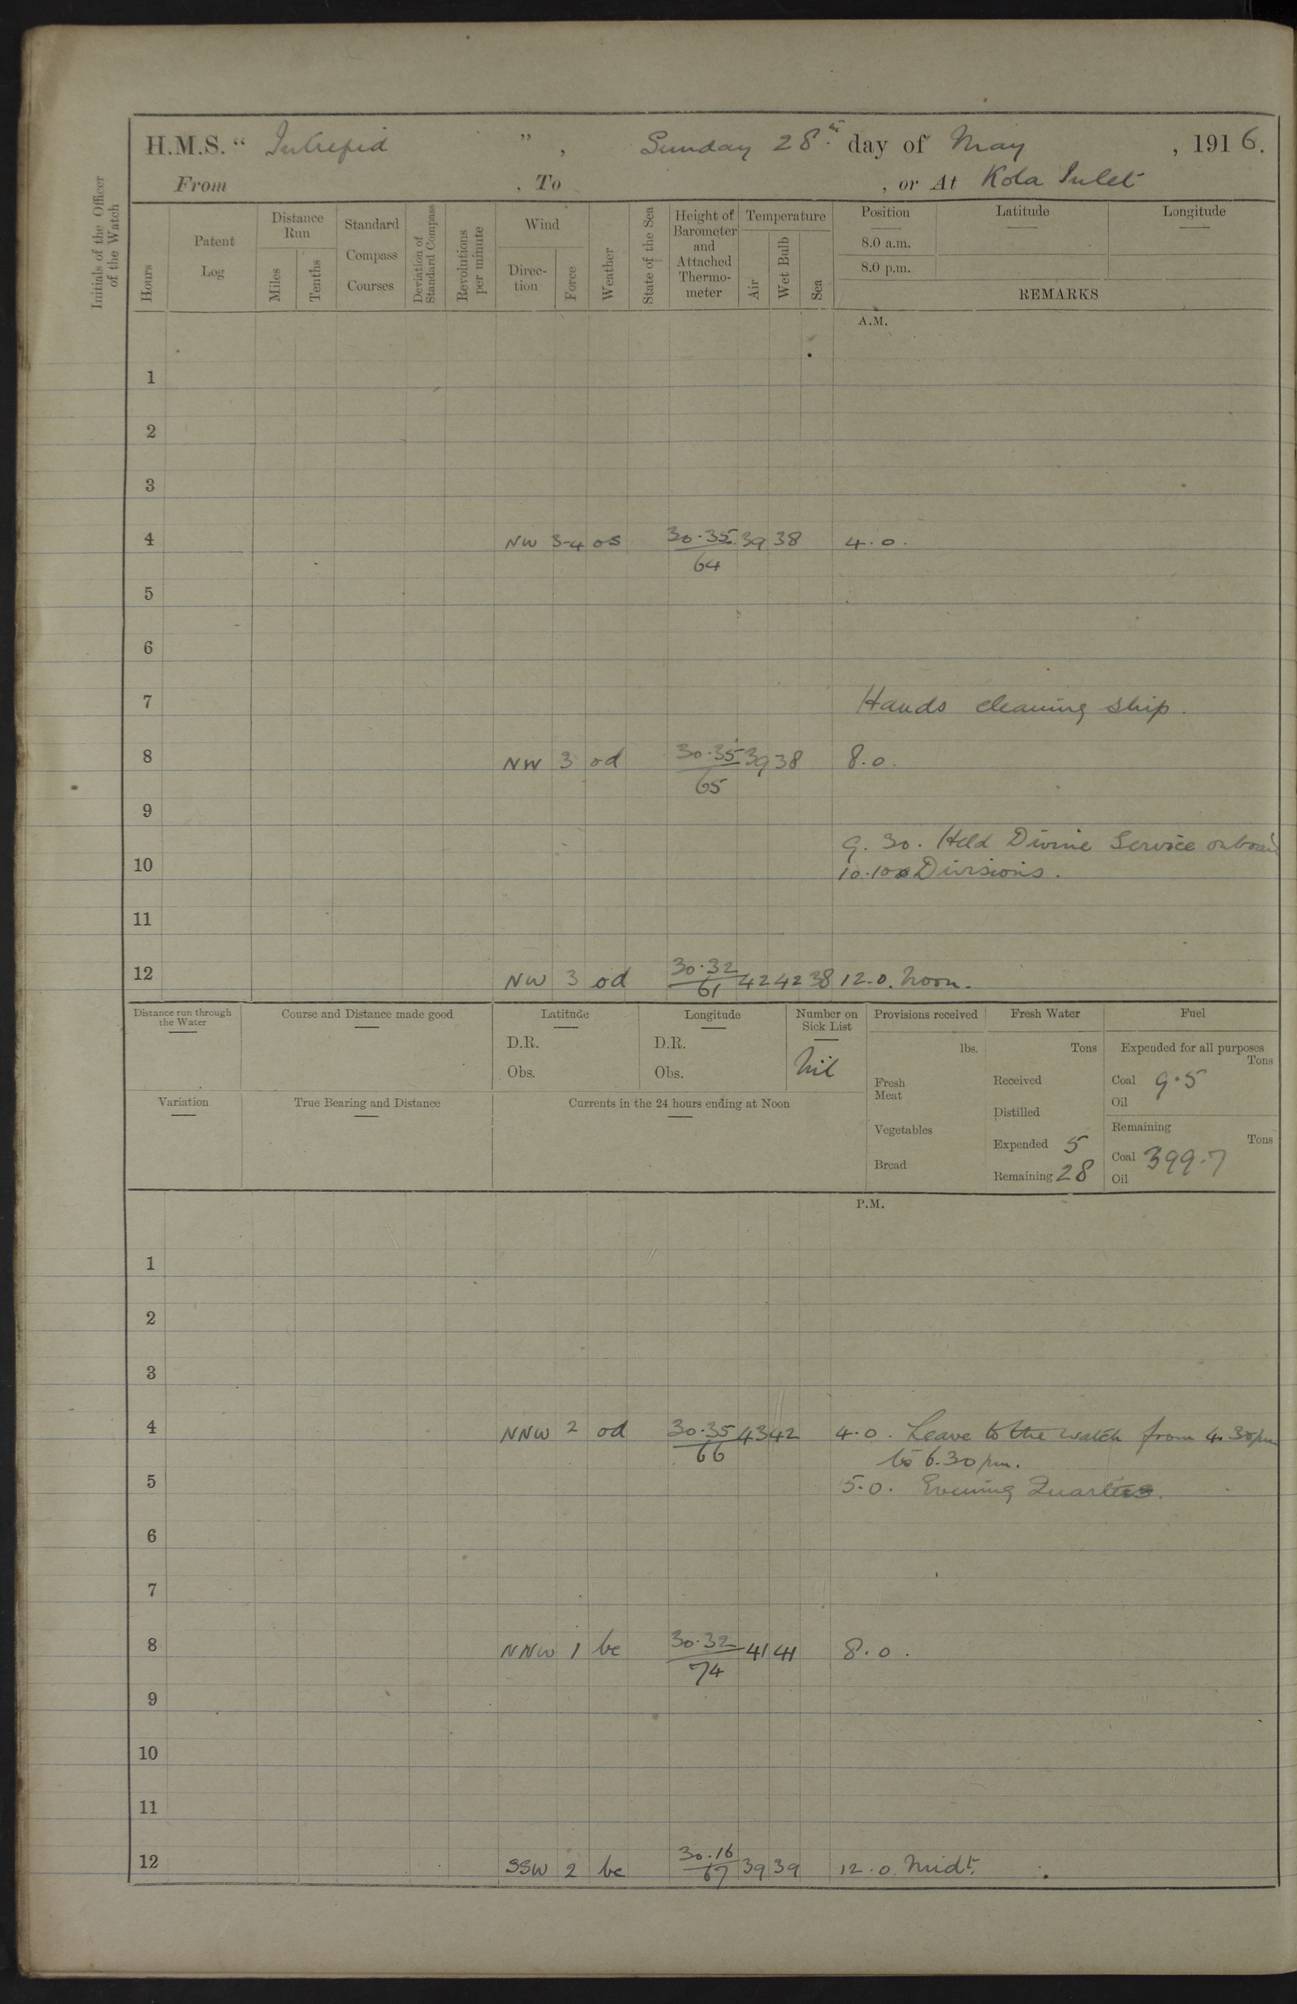 H.M.S. “ Intrepid ” , Sunday 28th day of May , 1916.
From , To , or At Kola Inlet
Initials of the Officer of the Watch
Hours
Patent Log
Distance Run
Miles
Tenths
Standard Compass Courses
Deviation of Standard Compass
Revolutions per minute
Wind
Direc-tion
Force
Weather
State of the Sea
Height of Barometer and Attached Thermo-meter
Temperature
Air
Wet Bulb
Sea
Position
8.0 a.m.
8.0 p.m.
Latitude
Longitude
REMARKS
A.M.
1
2
3
4 NW 3-4 os 30.35 39 38 4.0.
64
5
6
7 Hands cleaning ship.
8 NW 3 od 30.35 39 38 8.0.
65
9
9.30. Held Divine Service onboard
10 10.10 Divisions.
11
12 NW 3 od 30.32 42 42 38 12.0. Noon.
61
Distance run through the Water
Course and Distance made good
Latitude
D.R.
Obs.
Longitude
D.R.
Obs.
Number on Sick List
Nil
Provisions received
lbs.
Fresh Meat
Vegetables
Bread
Fresh Water
Tons
Received
Distilled
Expended 5
Remaining 28
Fuel
Expended for all purposes
Tons
Coal 9.5
Oil
Remaining
Tons
Coal 399.7
Oil
Variation
True Bearing and Distance
Currents in the 24 hours ending at Noon
P.M.
1
2
3
4 NNW 2 od 30.35 43 42 4.0. Leave to the watch from 4.30pm
66 to 6.30 pm.
5 5.0. Evening Quarters.
6
7
8 NNW 1 bc 30.32 41 41 8.0.
74
9
10
11
12 SSW 2 bc 30.16 39 39 12.0 Midt.
67